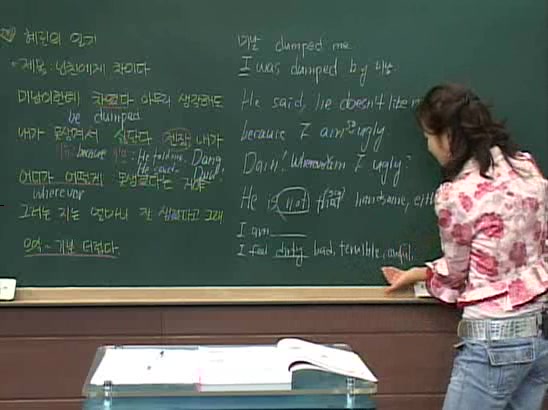 혜진의 일기
제목: 남친에게 차이다
미남이한테 차였다 아무리 생각해도
be dumped
내가 못생겨서 싫단다 젠장 내가
because He told me. Dang
He said Darn!
어디가 어떻게 못생겼다는 거야
wherever
그러는 지는 얼마나 잘 생겼다고 그래
으악~ 기분 더럽다
미남 dumped me.
I was dumped by 미남.
He said, he doesn't like m
because I am so ugly
Darn! Where am I ugly?
He is not that handsome, eith
I am
I feel dirty bad, terrible, awful.